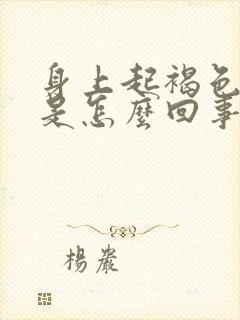 身上起褐色
是怎麼回事
楊嚴